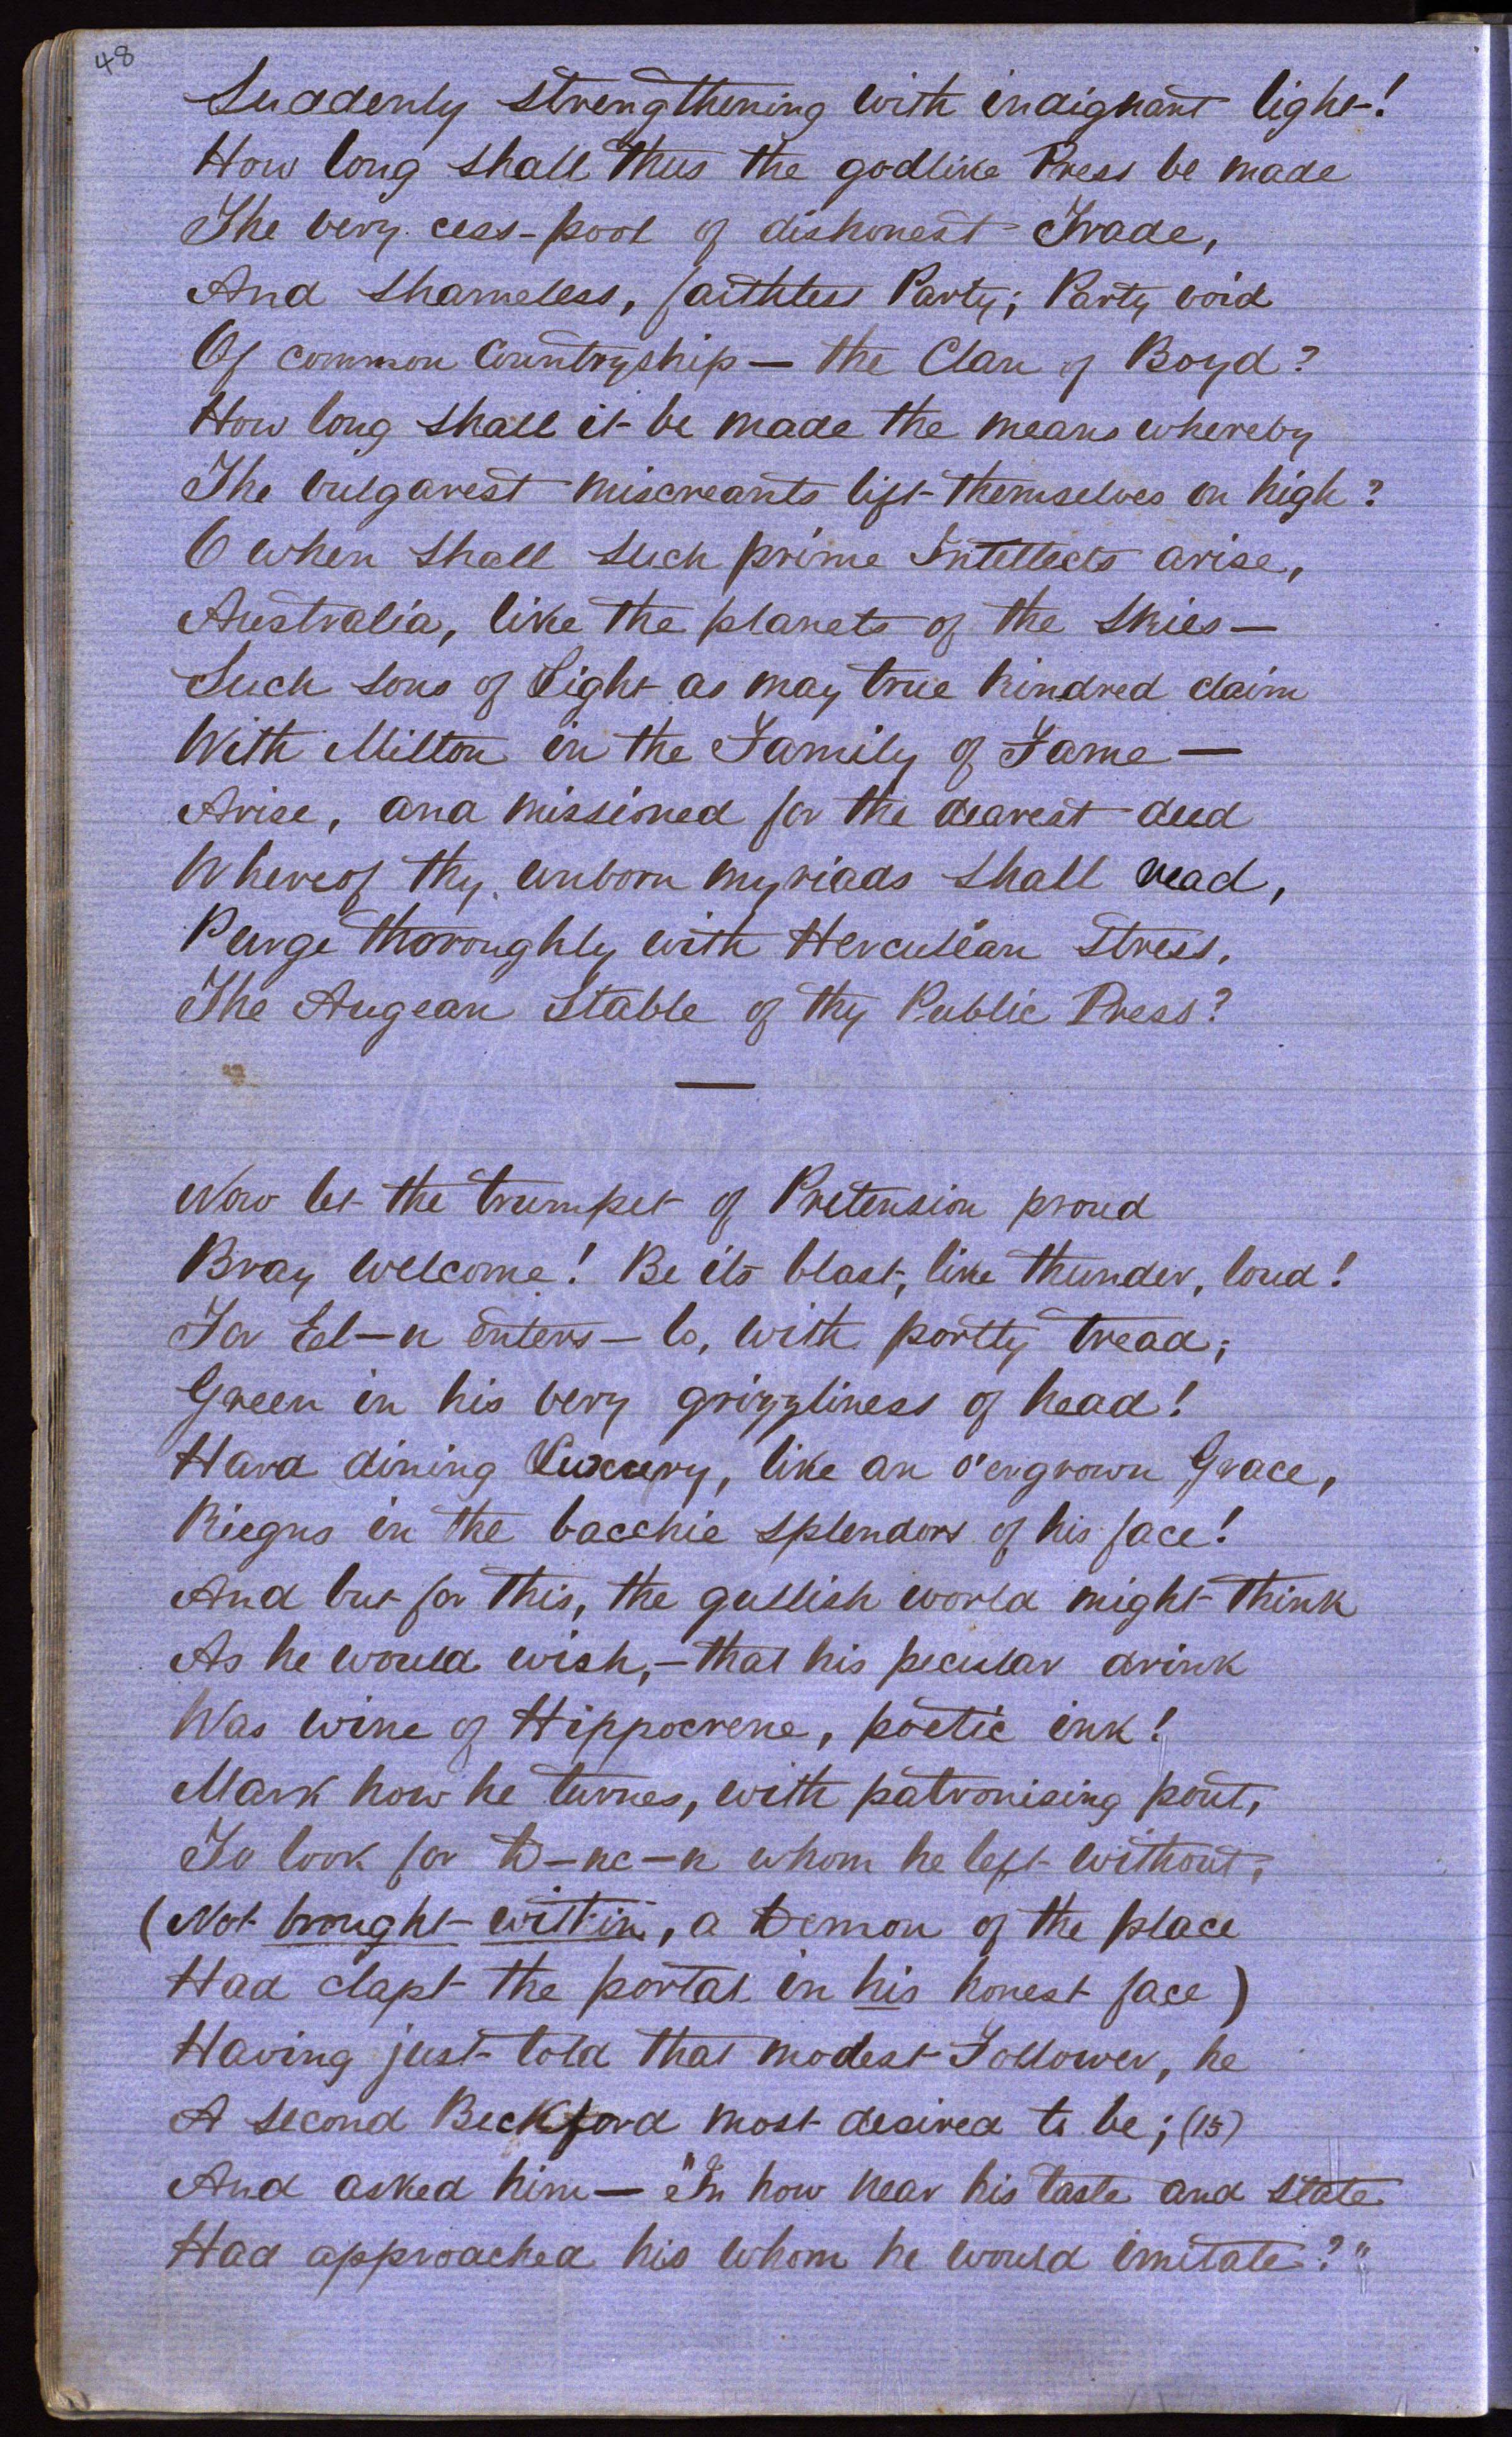 48
Suddenly strengthening with indignant light!
How long shall thus the godlike Press be made
The very cess-pool of dishonest Trade,
And shameless, faithless Party; Party void
Of common Countryship — the Clan of Boyd?
How long shall it be made the means whereby
The vulgarest miscreants lift themselves on high?
O when shall such prime Intellects arise,
Australia, like the planets of the skies —
Such sons of Light as may true kindred claim
With Milton in the Family of Fame —
Arise, and missioned for the dearest deed
Whereof thy unborn myriads shall read,
Purge thoroughly with Herculean stress,
The Augean Stable of thy Public Press?
—
Now let the trumpet of Pretension proud
Bray welcome! Be its blast, like thunder, loud!
For Ed—n enters — lo, with portly tread;
Green in his very grizzliness of head!
Hard dining Luxury, like an o'ergrown Grace,
Riegns in the bacchic splendors of his face!
And but for this, the gullish world might think
As he would wish, — that his pecular drink
Was wine of Hippocrene, poetic ink!
Mark how he turnes, with patronising pout,
To look for D—nc—n whom he left without,
(Not brought within, a Demon of the place
Had clapt the portal in his honest face)
Having just told that modest Follower, he
A second Beckford most desired to be; (15)
And asked him — "In how near his taste and state
Had approached his whom he would imitate?"